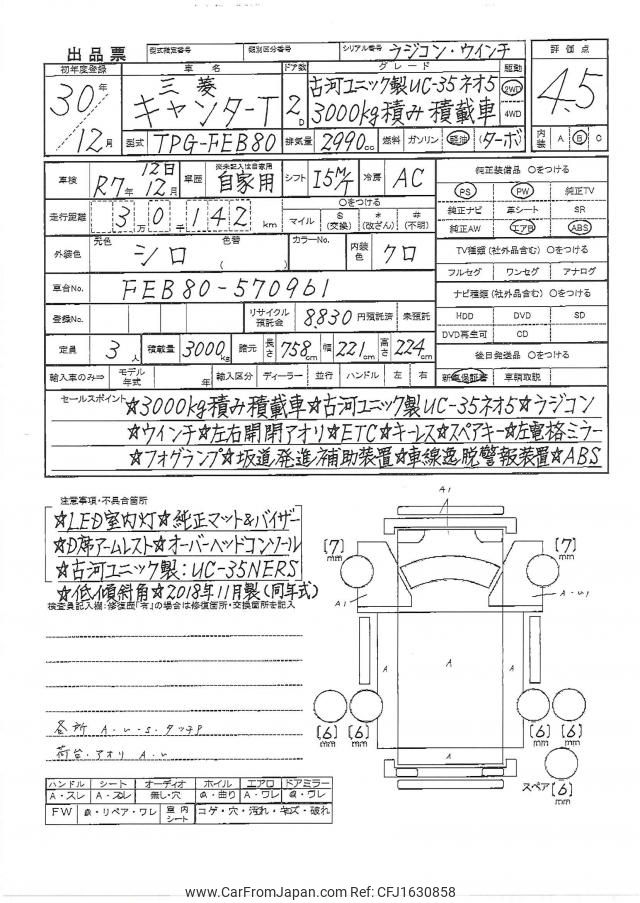 出品票 型式指定番号 類別区分番号 シリアル番号 ラジコン・ウインチ
初年度登録 車名 ドア数 グレード 駆動 評価点
30年 三菱 2D 古河ユニック製UC-35ネオ5 2WD 4.5
12月 キャンターT 3000kg積み積載車 4WD
型式 TPG-FEB80 排気量 2990cc 燃料 ガソリン 軽油 (ターボ) 内装 A B C
車検 R7年 12日 12月 車歴 自家用 シフト I5M/T 冷房 AC 純正装備品 ○をつける
PS PW 純正TV
走行距離 3万0千142km ○をつける マイル $(交換) *(改ざん) #(不明)
純正ナビ 革シート SR
純正AW エアB ABS
外装色 元色 シロ 色替 ( ) カラーNo. 内装色 クロ
TV種類(社外品含む) ○をつける
フルセグ ワンセグ アナログ
車台No. FEB80-570961
ナビ種類(社外品含む) ○をつける
登録No. リサイクル預託金 8830円預託済 未預託
HDD DVD SD
DVD再生可 CD
定員 3人 積載量 3000kg 諸元 長さ 758cm 幅 221cm 高さ 224cm
後日発送品 ○をつける
輸入車のみ⇒ モデル年式 年 輸入区分 ディーラー 並行 ハンドル 左 右 新車保証書 車輌取説
セールスポイント ☆3000kg積み積載車☆古河ユニック製UC-35ネオ5☆ラジコン
☆ウインチ☆左右開閉アオリ☆ETC☆キーレス☆スペアキー☆左電格ミラー
☆フォグランプ☆坂道発進補助装置☆車線逸脱警報装置☆ABS
注意事項・不具合箇所
☆LED室内灯☆純正マット&バイザー
☆D席アームレスト☆オーバーヘッドコンソール
☆古河ユニック製:UC-35NERS
☆低傾斜角☆2018年11月製(同年式)
検査員記入欄:修復歴「有」の場合は修復箇所・交換箇所を記入
各所 A・U・S・タッチP
荷台・アオリ A・U
A1
[7]mm [7]mm
A1 A・U1
A A A
[6]mm [6]mm [6]mm [6]mm
スペア[6]mm
ハンドル シート オーディオ ホイル エアロ ドアミラー
A・スレ A・スレ 無し・穴 曲り A・ワレ ワレ
FW リペア・ワレ 室内シート コゲ・穴・汚れ・キズ・破れ
www.CarFromJapan.com Ref: CFJ1630858